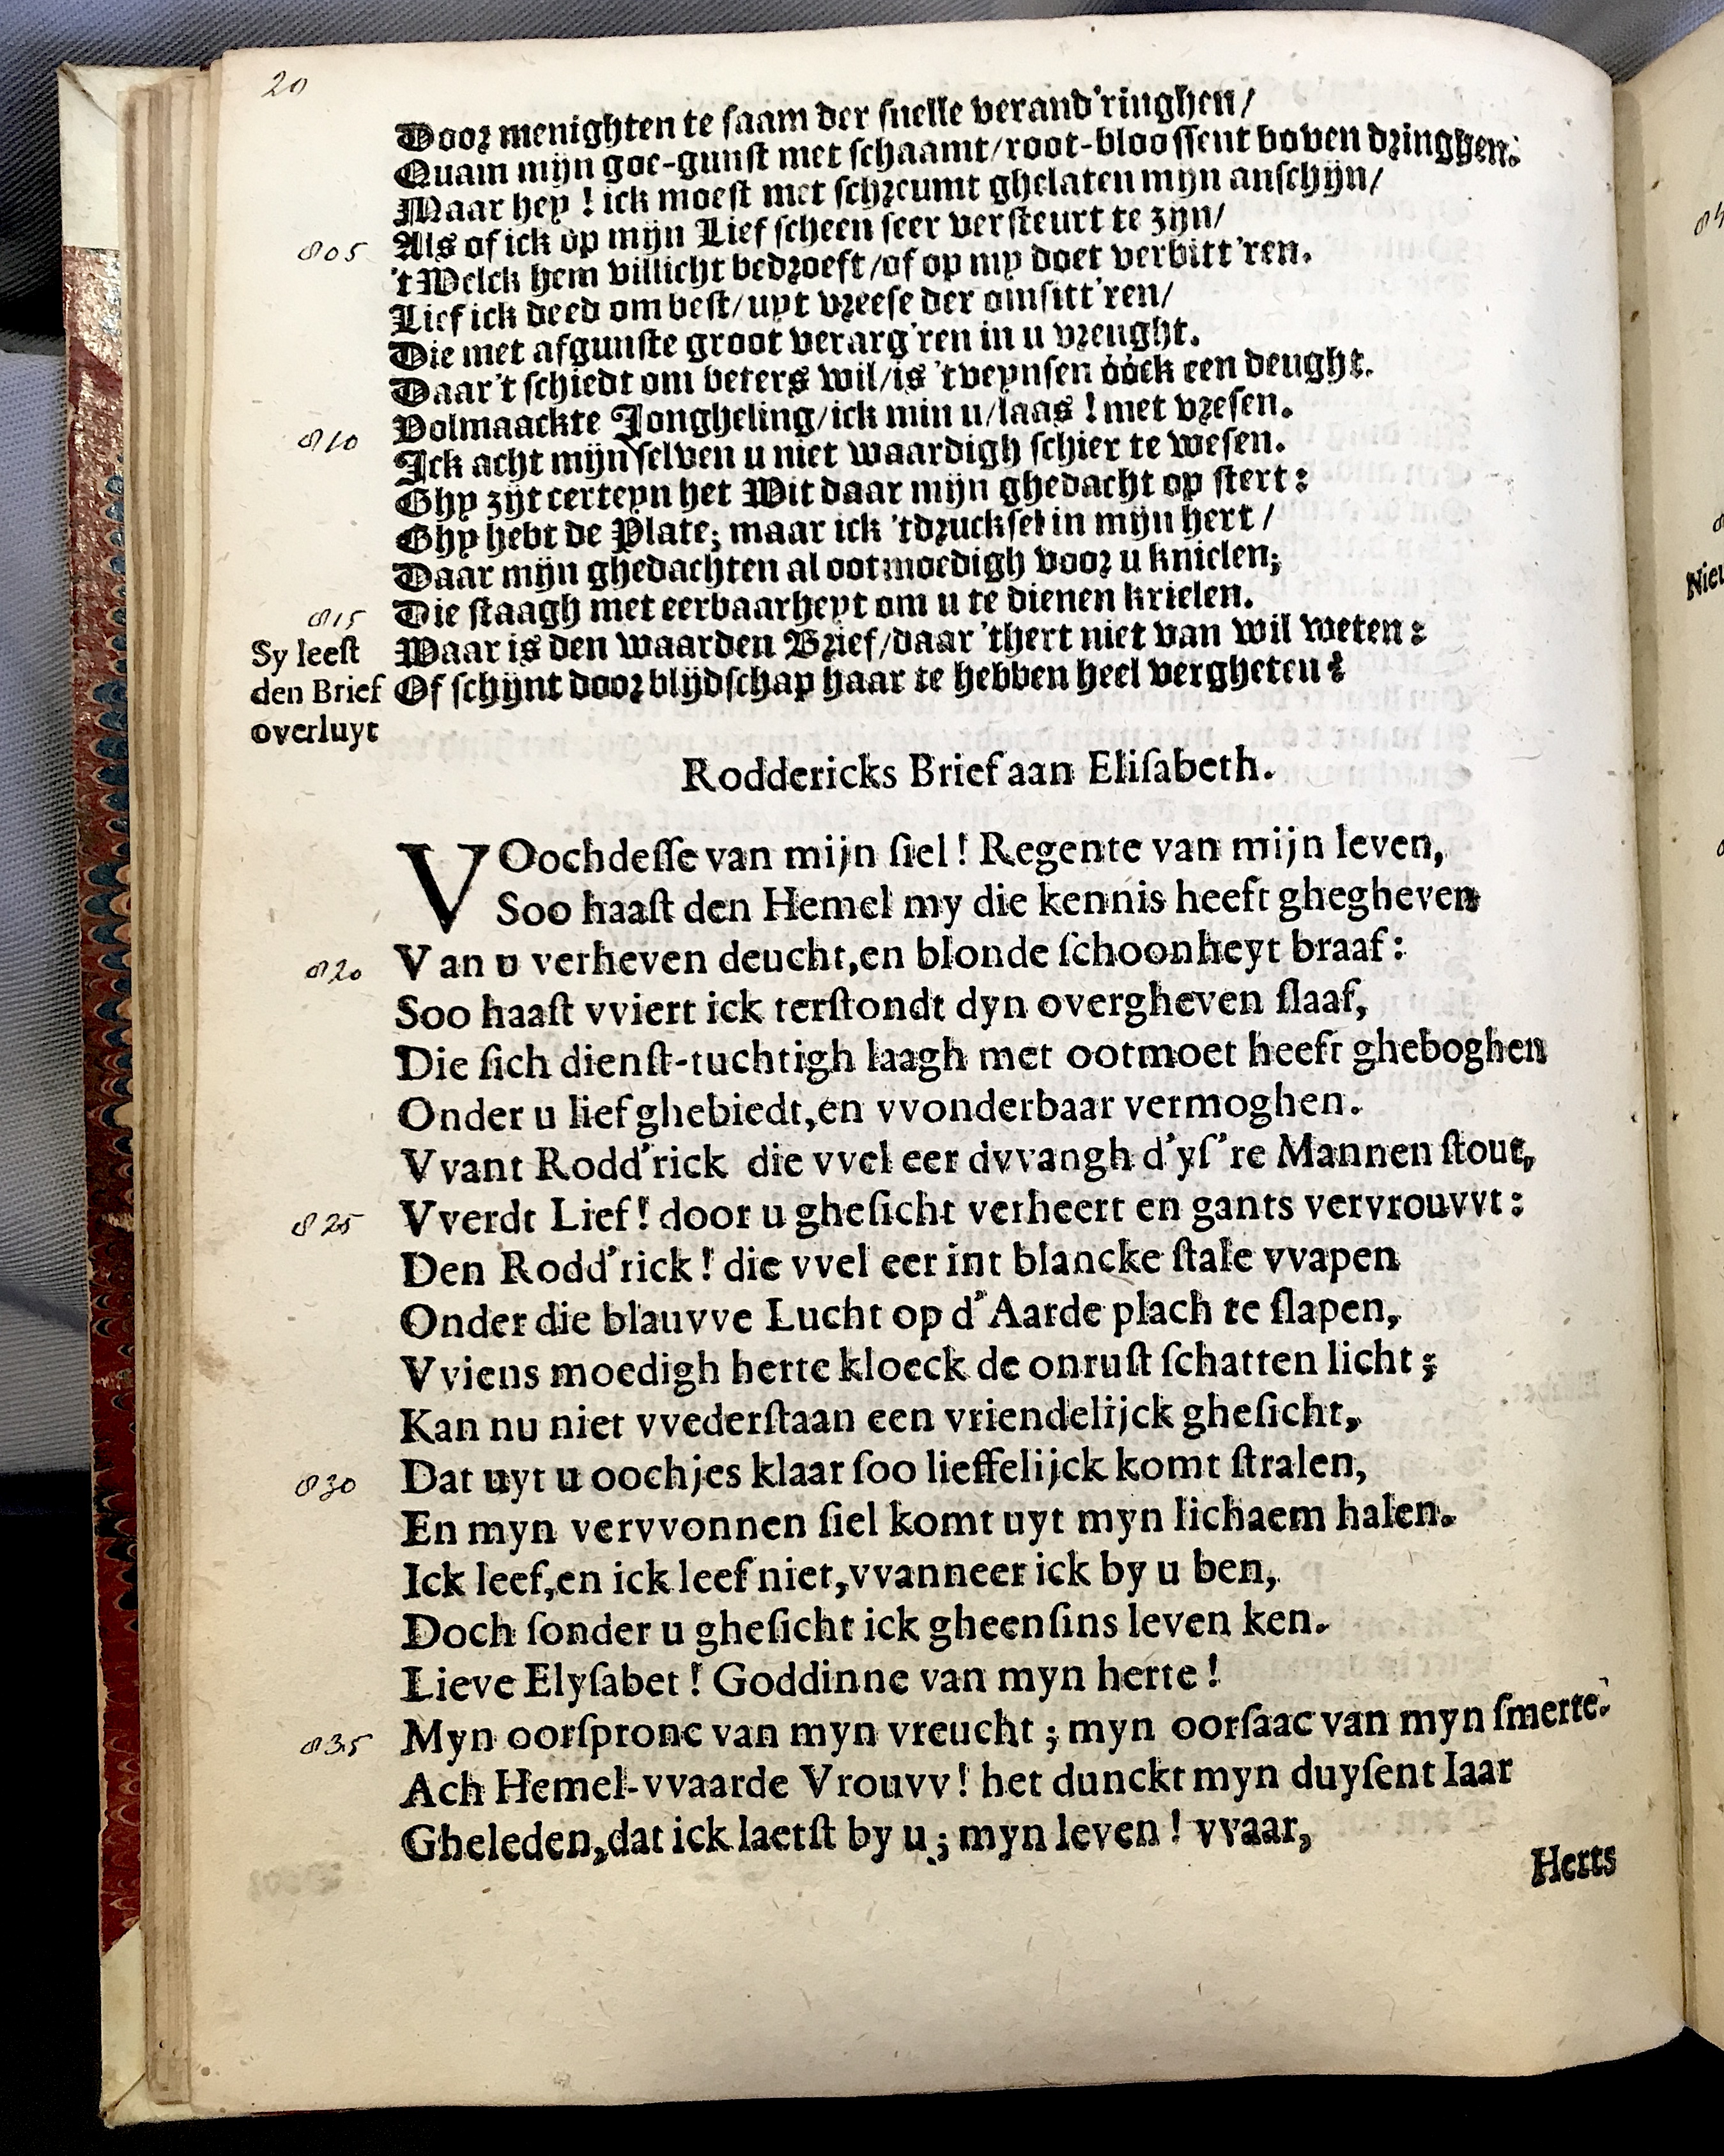 20
Door menighten te saam der snelle verand'ringhen/
Quam mijn goe-gunst met schaamt/root-bloossent boven dringhen.
Maar hey ! ick moest met schreumt ghelaten mijn anschijn/
805 Als of ick op mijn Lief scheen seer versteurt te zijn/
't Welck hem villicht bedroeft/of op my doet verbitt'ren.
Lief ick deed om best/uyt vreese der omsitt'ren/
Die met afgunste groot verarg'ren in u vreught.
Daar't schiedt om beters wil/is 'tveynsen óóck een deught.
810 Volmaackte Jongheling/ick min u/laas ! met vresen.
Ick acht mijn selven u niet waardigh schier te wesen.
Ghy zijt certeyn het Wit daar mijn ghedacht op stert:
Ghy hebt de Plate; maar ick 'tdrucksel in mijn hert /
Daar mijn ghedachten al ootmoedigh voor u knielen;
815 Die staagh met eerbaarheyt om u te dienen krielen.
Sy leest
den Brief
overluyt
Waar is den waarden Brief/daar 'thert niet van wil weten:
Of schijnt door blijdschap haar te hebben heel vergheten?
Roddericks Brief aan Eliſabeth.
VOochdeſſe van mijn ſiel! Regente van mijn leven,
Soo haaſt den Hemel my die kennis heeft ghegheven
820 Van u verheven deucht,en blonde ſchoonheyt braaf:
Soo haaſt vviert ick terſtondt dyn overgheven ſlaaf,
Die ſich dienſt-tuchtigh laagh met ootmoet heeft gheboghen
Onder u lief ghebiedt,en vvonderbaar vermoghen.
Vvant Rodd'rick die vvel eer dvvangh d'yſ're Mannen ſtout,
825 Vverdt Lief! door u gheſicht verheert en gants vervrouvvt:
Den Rodd'rick! die vvel eer int blancke ſtale vvapen
Onder die blauvve Lucht op d'Aarde plach te ſlapen,
Vviens moedigh herte kloeck de onruſt ſchatten licht;
Kan nu niet vvederſtaan een vriendelijck gheſicht,
830 Dat uyt u oochjes klaar ſoo lieffelijck komt ſtralen,
En myn vervvonnen ſiel komt uyt myn lichaem halen.
Ick leef,en ick leef niet,vvanneer ick by u ben,
Doch ſonder u gheſicht ick gheenſins leven ken.
Lieve Elyſabet! Goddinne van myn herte!
835 Myn oorſpronc van myn vreucht; myn oorſaac van myn ſmerte.
Ach Hemel-vvaarde Vrouvv! het dunckt myn duyſent Iaar
Gheleden,dat ick laetſt by u; myn leven! vvaar,
Herts